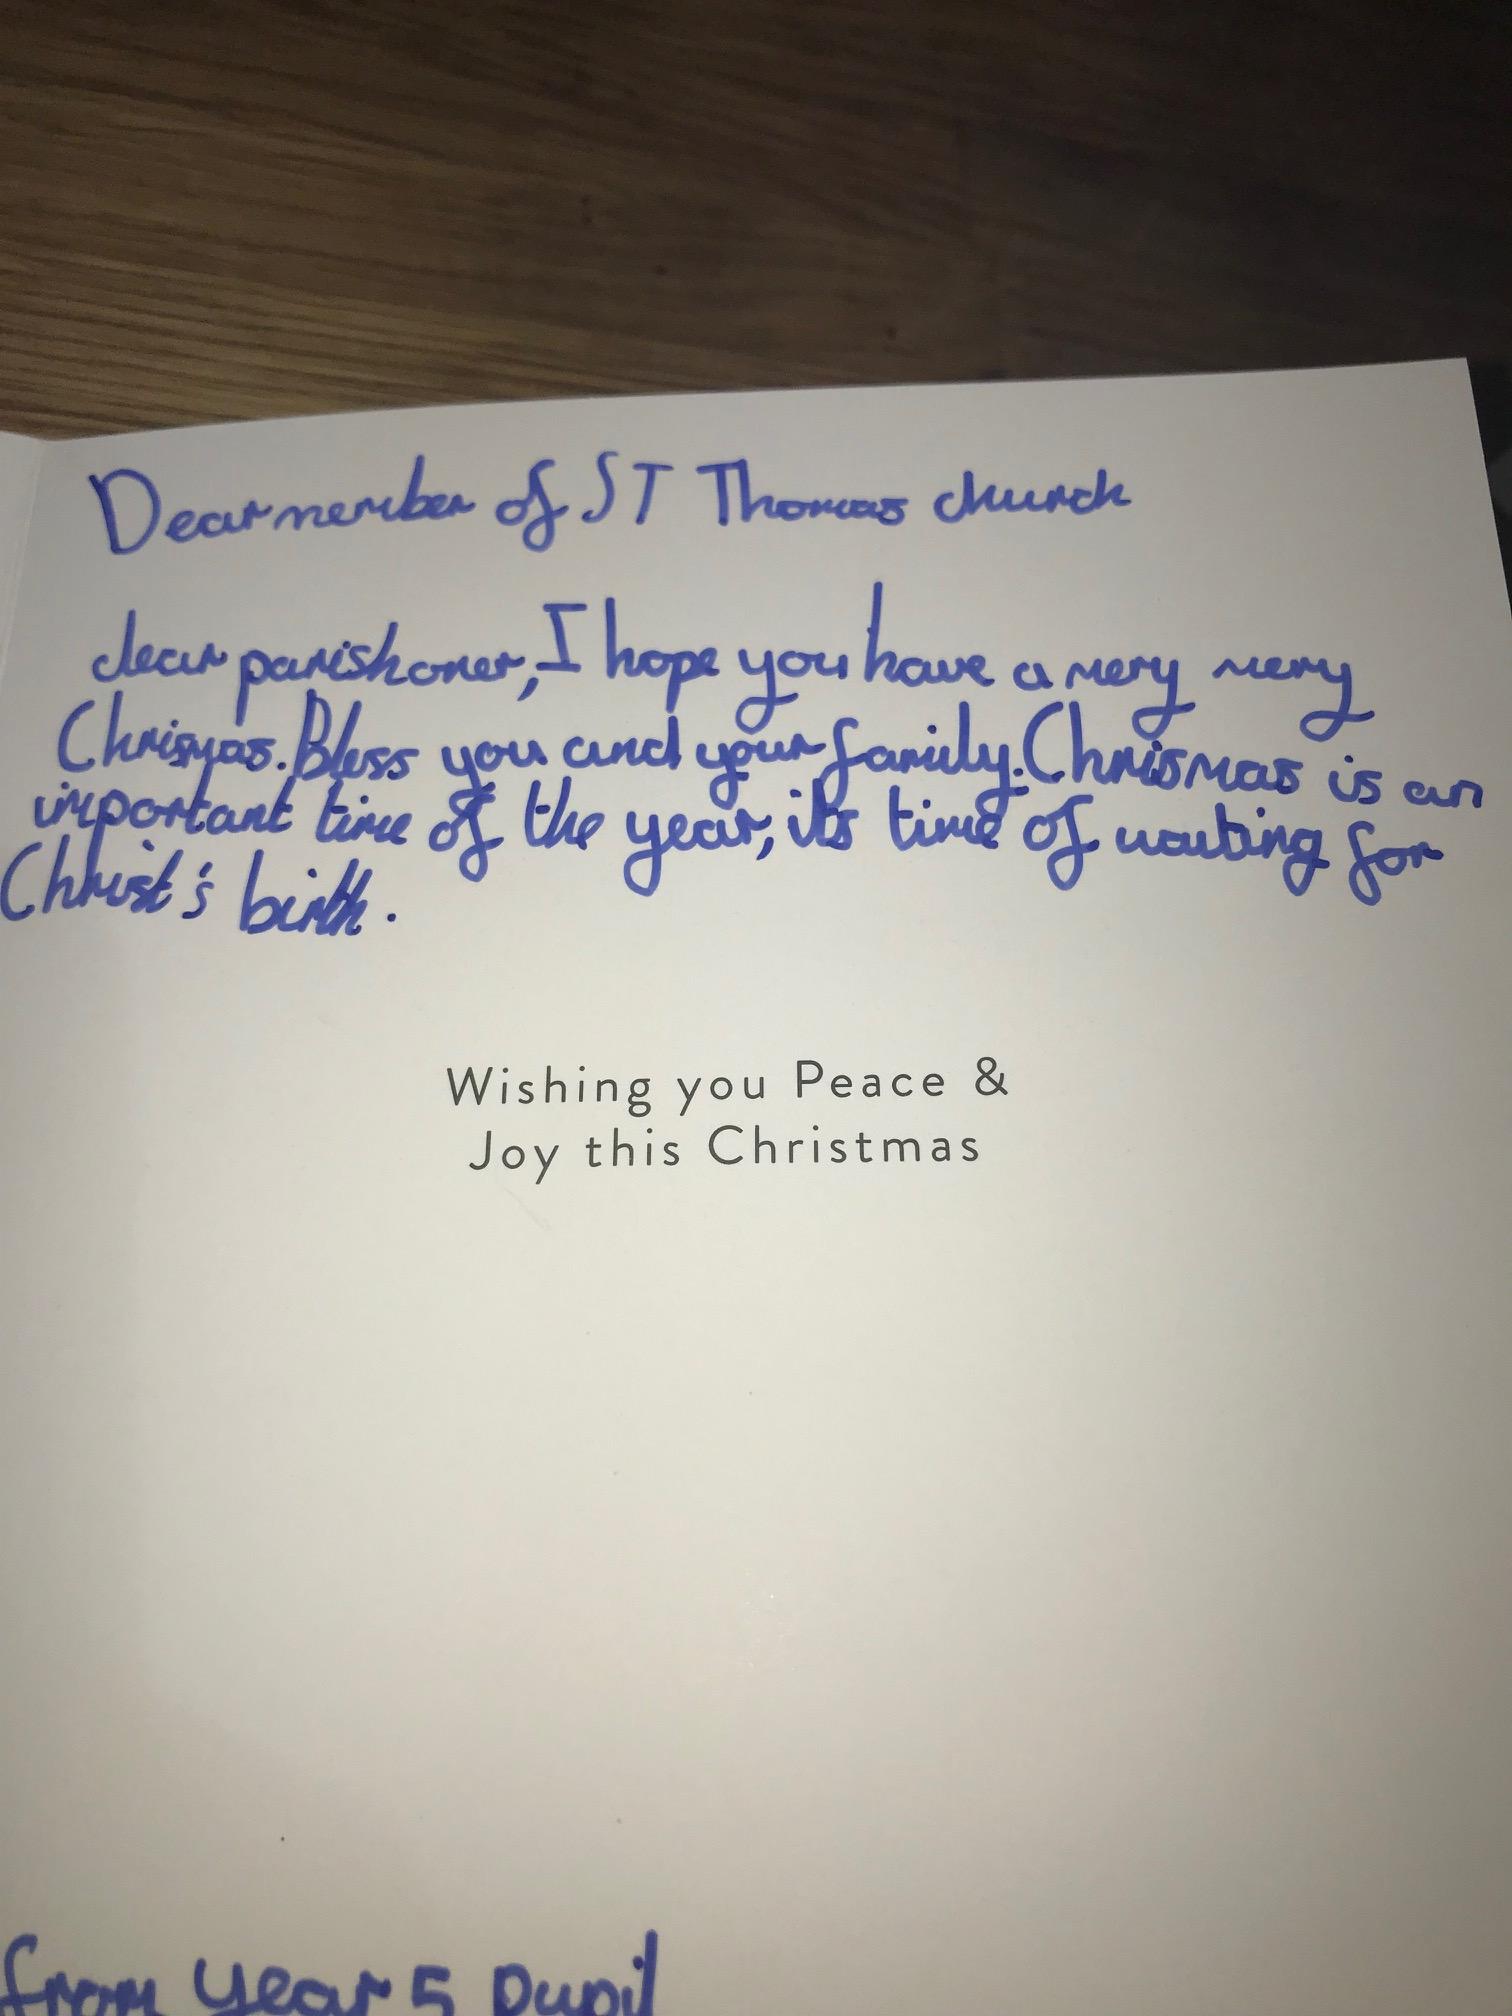 Dear member of ST Thomas church
dear parishoner, I hope you have a mery mery
Chrismas. Bless you and your family. Chrismas is an
important time of the year, its time of waiting for
Christ's birth.
Wishing you Peace &
Joy this Christmas
from year 5 pupil